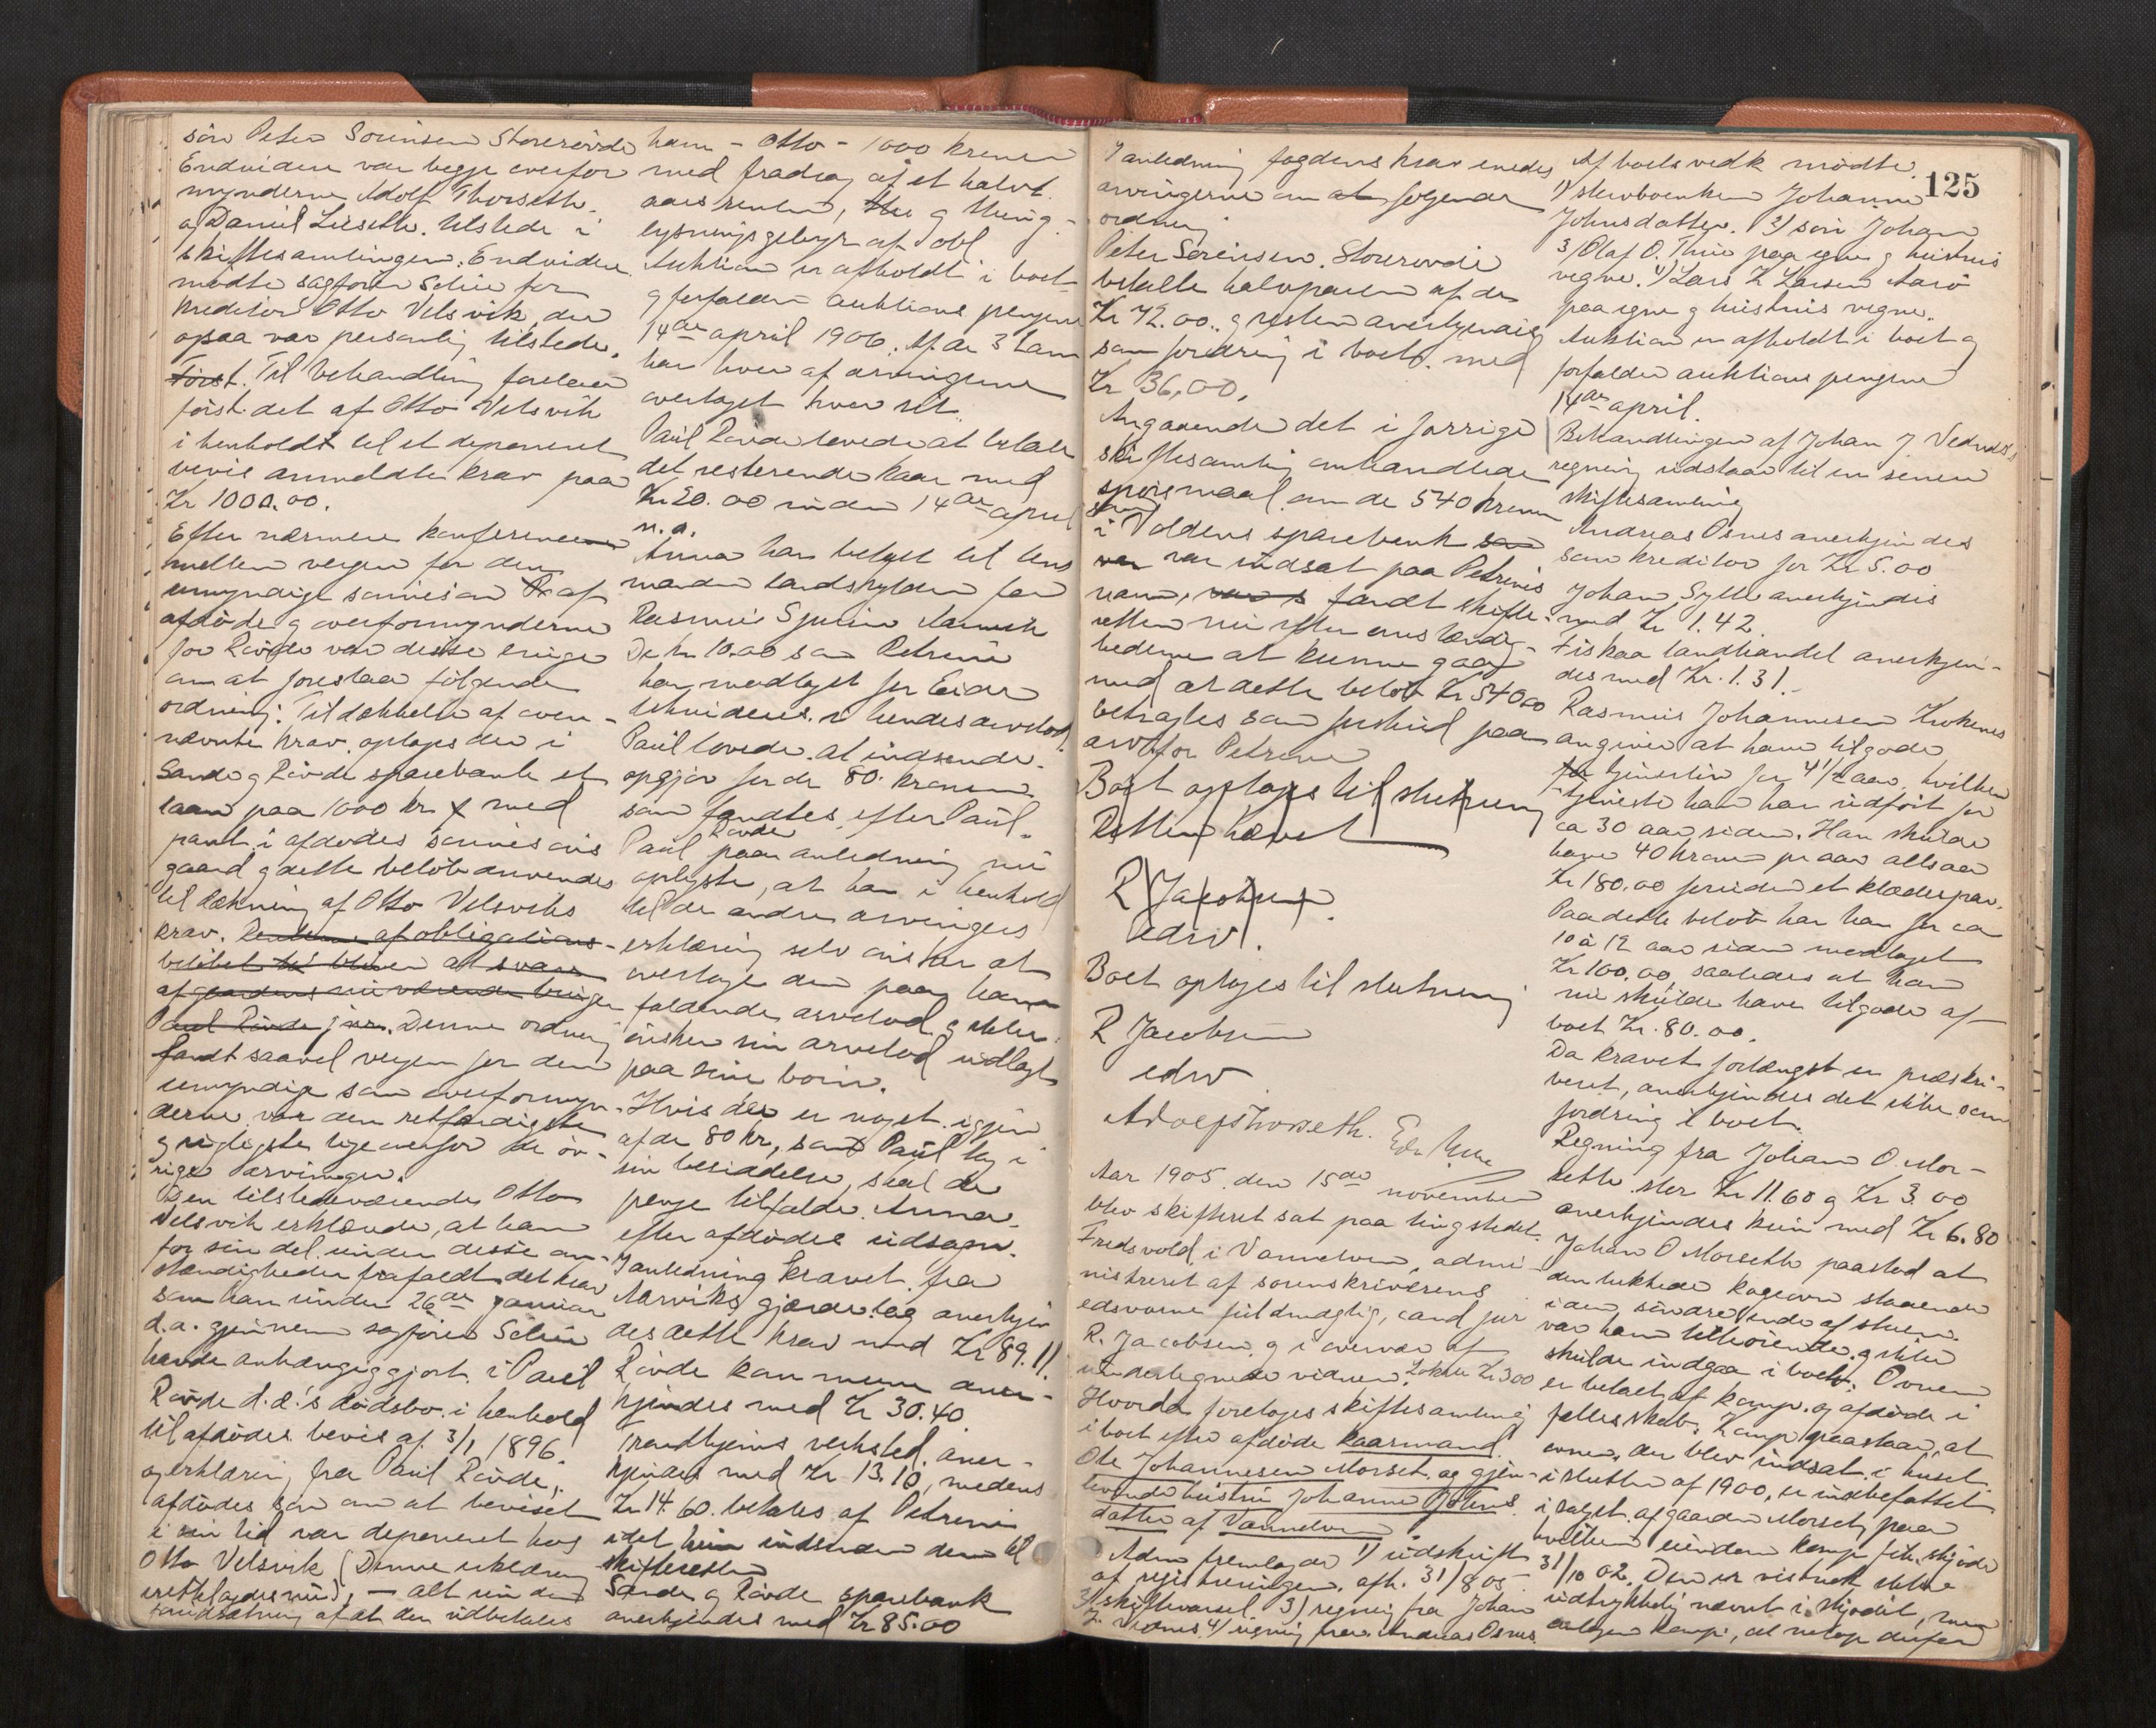 sön Peter Sörensen Storerövde
Endvidere var begge overfor
mynderne Adolf Thorseth
og Daniel Lieseth tilstede i
skiftesamlingen. Endvidere
mødte sagfører Solim for
kreditor Otto Velsvik, der
ogsaa var personlig tilstede.
Først. Til behandling forelaa
først det af Otto Velsvik
i henhold til et deponeret
bevis anmeldte krav paa
Kr 1000.00.
Efter nærmere konferencer
mellem vergen for den
umyndige sönnesön af
afdöde og overformynderne
for Rövde var disse enige
om at foreslaa fölgende
ordning: Til dækkelse af oven-
nævnte krav optages der i
Sande og Rövde sparebank et
laan paa 1000 kr med
pant i afdödes sönnesöns
gaard og dette belöb anvendes
til dækning af Otto Velsviks
krav. Renterne af obligations-
belöbet bliver at svare
af gaardens nuværende bruger
Paul Rövde jnr. Denne ordning
fandt saavel vergen for den
umyndige som overformyn-
derne var den retfærdigste
og rigtigste ligeoverfor de öv-
rige arvinger.
Den tilstedeværende Otto
Velsvik erklærede, at han
for sin del under disse om-
stændigheder frafaldt det krav
som han under 26de januar
d.a. gjennem sagförer Solim
havde anhængiggjort i Paul
Rövde d.æ.'s dödsbo i henhold
til afdödes bevis af 3/1 1896
og erklæring fra Paul Rövde,
afdödes sön om at beviset
i sin tid var deponeret hos
Otto Velsvik (Denne erklæring
fremlagdes nu), — alt under
forudsætning af at der udbetales
ham - Otto - 1000 kroner
med fradrag af et halvt
aars renter, og thing-
lysningsgebyr af obl
Auktion er afholdt i boet
og forfalder auktions pengene
14de april 1906. Af de 3 Lam
har hver af arvingerne
overtaget hver sit.
Paul Rövde lovede at betale
det resterende kaar med
Kr 20.00 inden 14de april
n.a.
Anna har betalt til lens
manden landskylden for
Rasmus
De kr 10.00 som Petrine
har modtaget for Eidsr
likvideres i hendes arvelod.
Paul lovede at indsende
opgjör for de 80 kroner
som fandtes efter Paul.
Paul Rövde paa anledning nu
oplyste, at han i henhold
til de andre arvingers
erklæring selv önsker at
overtage den paa ham
faldende arvelod og ikke
önsker sin arvelod udlagt
paa sine börn.
Hvis der er noget igjen
af de 80 kr, som Paul tog i
sin besiddelse, skal de
penge tilfalde Anna
efter afdödes udsagn.
I anledning kravet fra
Aarviks gjorde sig anerkjen
des dette krav med Kr 89.11
Rövde kan mene aner-
kjendes med Kr 30.40
Trandhjems verksted aner-
kjendes med Kr 13.10, medens
Kr 14.60 betales af Petrine
idet hun indsender dem til
skifteretten
Sande og Rövde sparebank
anerkjendes med Kr 85.00
125
I anledning fogdens krav enedes
arvingerne om at fölgende
ordning
Peter Sörensen Storerövde
betalte halvparten af de
Kr 72.00 og resten anerkjendes
som fordring i boet med
Kr 36,00.
Angaaende det i forrige
skiftesamling omhandlede
spörsmaal om de 540 kroner
som
i Voldens sparebank som
var var indsat paa Petrines
navn, fandt skifte-
retten nu efter omstændig-
hederne at kunne gaa
med at dette belöb Kr 540.00
betragtes som forskud paa
arv for Petrine
Boet optages til slutning
Retten hævet
R Jacobsen
edsv.
Boet optages til slutning
R Jacobsen
edsv
Adolf Thorseth.
Aar 1905 den 15de november
blev skifteret sat paa tingstedet
Fredsvold i Vannelven, admi-
nistreret af sorenskriverens
edsvorne fuldmægtig, cand jur
R. Jacobsen og i overvær af
undertegnede vidner. Lokale Kr 3.00
Hvorda foretoges skiftesamling
i boet efter afdöde kaarmand
Ole Johannesen Morset og gjen-
levende hustru Johanne Johns
datter af Vannelven
Adm fremlagde 1) udskrift
af registreringen afh. 31/8 05
2) skiftevarsel 3) regning fra Johan
J. Vednes 4) regning fra Andreas Osnes
Af boets vedk mödte
1) sterboenken Johanne
Johnsdatter. 2) sön Johan
3) Olaf O. Thue paa egne og hustrus
vegne. 4) Lars K Larsen Aarö
paa egne og hustrus vegne.
Auktion er afholdt i boet og
forfalder auktions pengene
14de april.
Behandlingen af Johan J. Vednes's
regning udstaar til en senere
skiftesamling
Andreas Osnes anerkjendes
som kreditor for Kr 5.00
Johan Sylte anerkjendes
med Kr 1.42.
Fiskaa landhandel anerkjen-
des med Kr. 1.31.-
Rasmus Johannesen Krokenes
angiver at have tilgode
for tjenestlön for 4 1/2 aar, hvilken
tjeneste han har udfört for
ca 30 aar siden. Han skulde
have 40 kroner pr aar altsaa
Kr 180.00 foruden et klædespar.
Paa dette belöb har han for ca
10 à 12 aar siden modtaget
Kr 100.00, saaledes at han
nu skulde have tilgode af
boet Kr. 80.00.
Da kravet forlængst er præskri-
beret, anerkjendes det ikke som
fordring i boet.
Regning fra Johan O. Mor-
seth stor Kr 11.60 og Kr 3.00
anerkjendes kun med Kr 6.80
Johan O Morseth paastod at
den kogeovn staaende
i den söndre ende af stuen
var ham tilhörende og ikke
skulde indgaa i boet. Ovnen
er betalt af komp. og afdöde i
fellesskab. Komp paastaar, at
ovnen, der blev indsat i huset
i slutten af 1900, er indbefattet
i salget af gaarden Morset, paa
hvilken eiendom komp fik skjöde
31/10 02. Den er vistnok ikke
udtrykkelig nævnt i skjödet, men
antager komp, at netop derfor